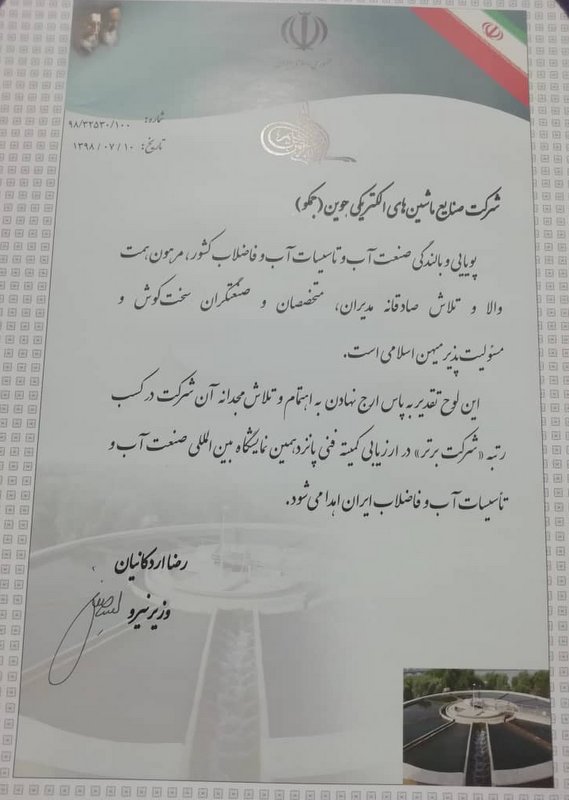 جمهوری اسلامی ایران
شماره: ۹۸/۳۲۵۳۰/۱۰۰
تاریخ: ۱۳۹۸/۰۷/۱۰
شرکت صنایع ماشین‌های الکتریکی جوین (جمکو)
پویایی و بالندگی صنعت آب و تاسیسات آب و فاضلاب کشور، مرهون همت
والا و تلاش صادقانه مدیران، متخصصان و صنعتگران سخت‌کوش و
مسئولیت‌پذیر میهن اسلامی است.
این لوح تقدیر به پاس ارج نهادن به اهتمام و تلاش مجدانه آن شرکت در کسب
رتبه «شرکت برتر» در ارزیابی کمیته فنی پانزدهمین نمایشگاه بین المللی صنعت آب و
تأسیسات آب و فاضلاب ایران اهدا می‌شود.
رضا اردکانیان
وزیر نیرو